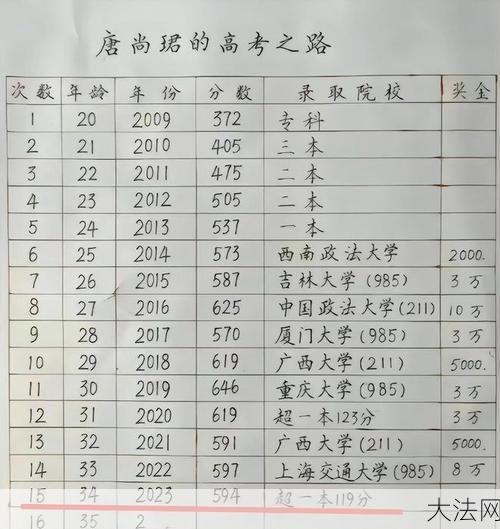 唐尚珺的高考之路
次数 年龄 年份 分数 录取院校 奖金
1 20 2009 372 专科
2 21 2010 405 三本
3 22 2011 475 二本
4 23 2012 505 二本
5 24 2013 537 一本
6 25 2014 573 西南政法大学 2000.
7 26 2015 587 吉林大学(985) 3万
8 27 2016 625 中国政法大学(211) 10万
9 28 2017 570 厦门大学(985) 3万
10 29 2018 619 广西大学(211) 5000.
11 30 2019 646 重庆大学(985) 3万
12 31 2020 619 超一本123分 3万
13 32 2021 591 广西大学(211) 5000.
14 33 2022 597 上海交通大学(985) 8万
15 34 2023 594 超一本119分
16 35 2
大法网